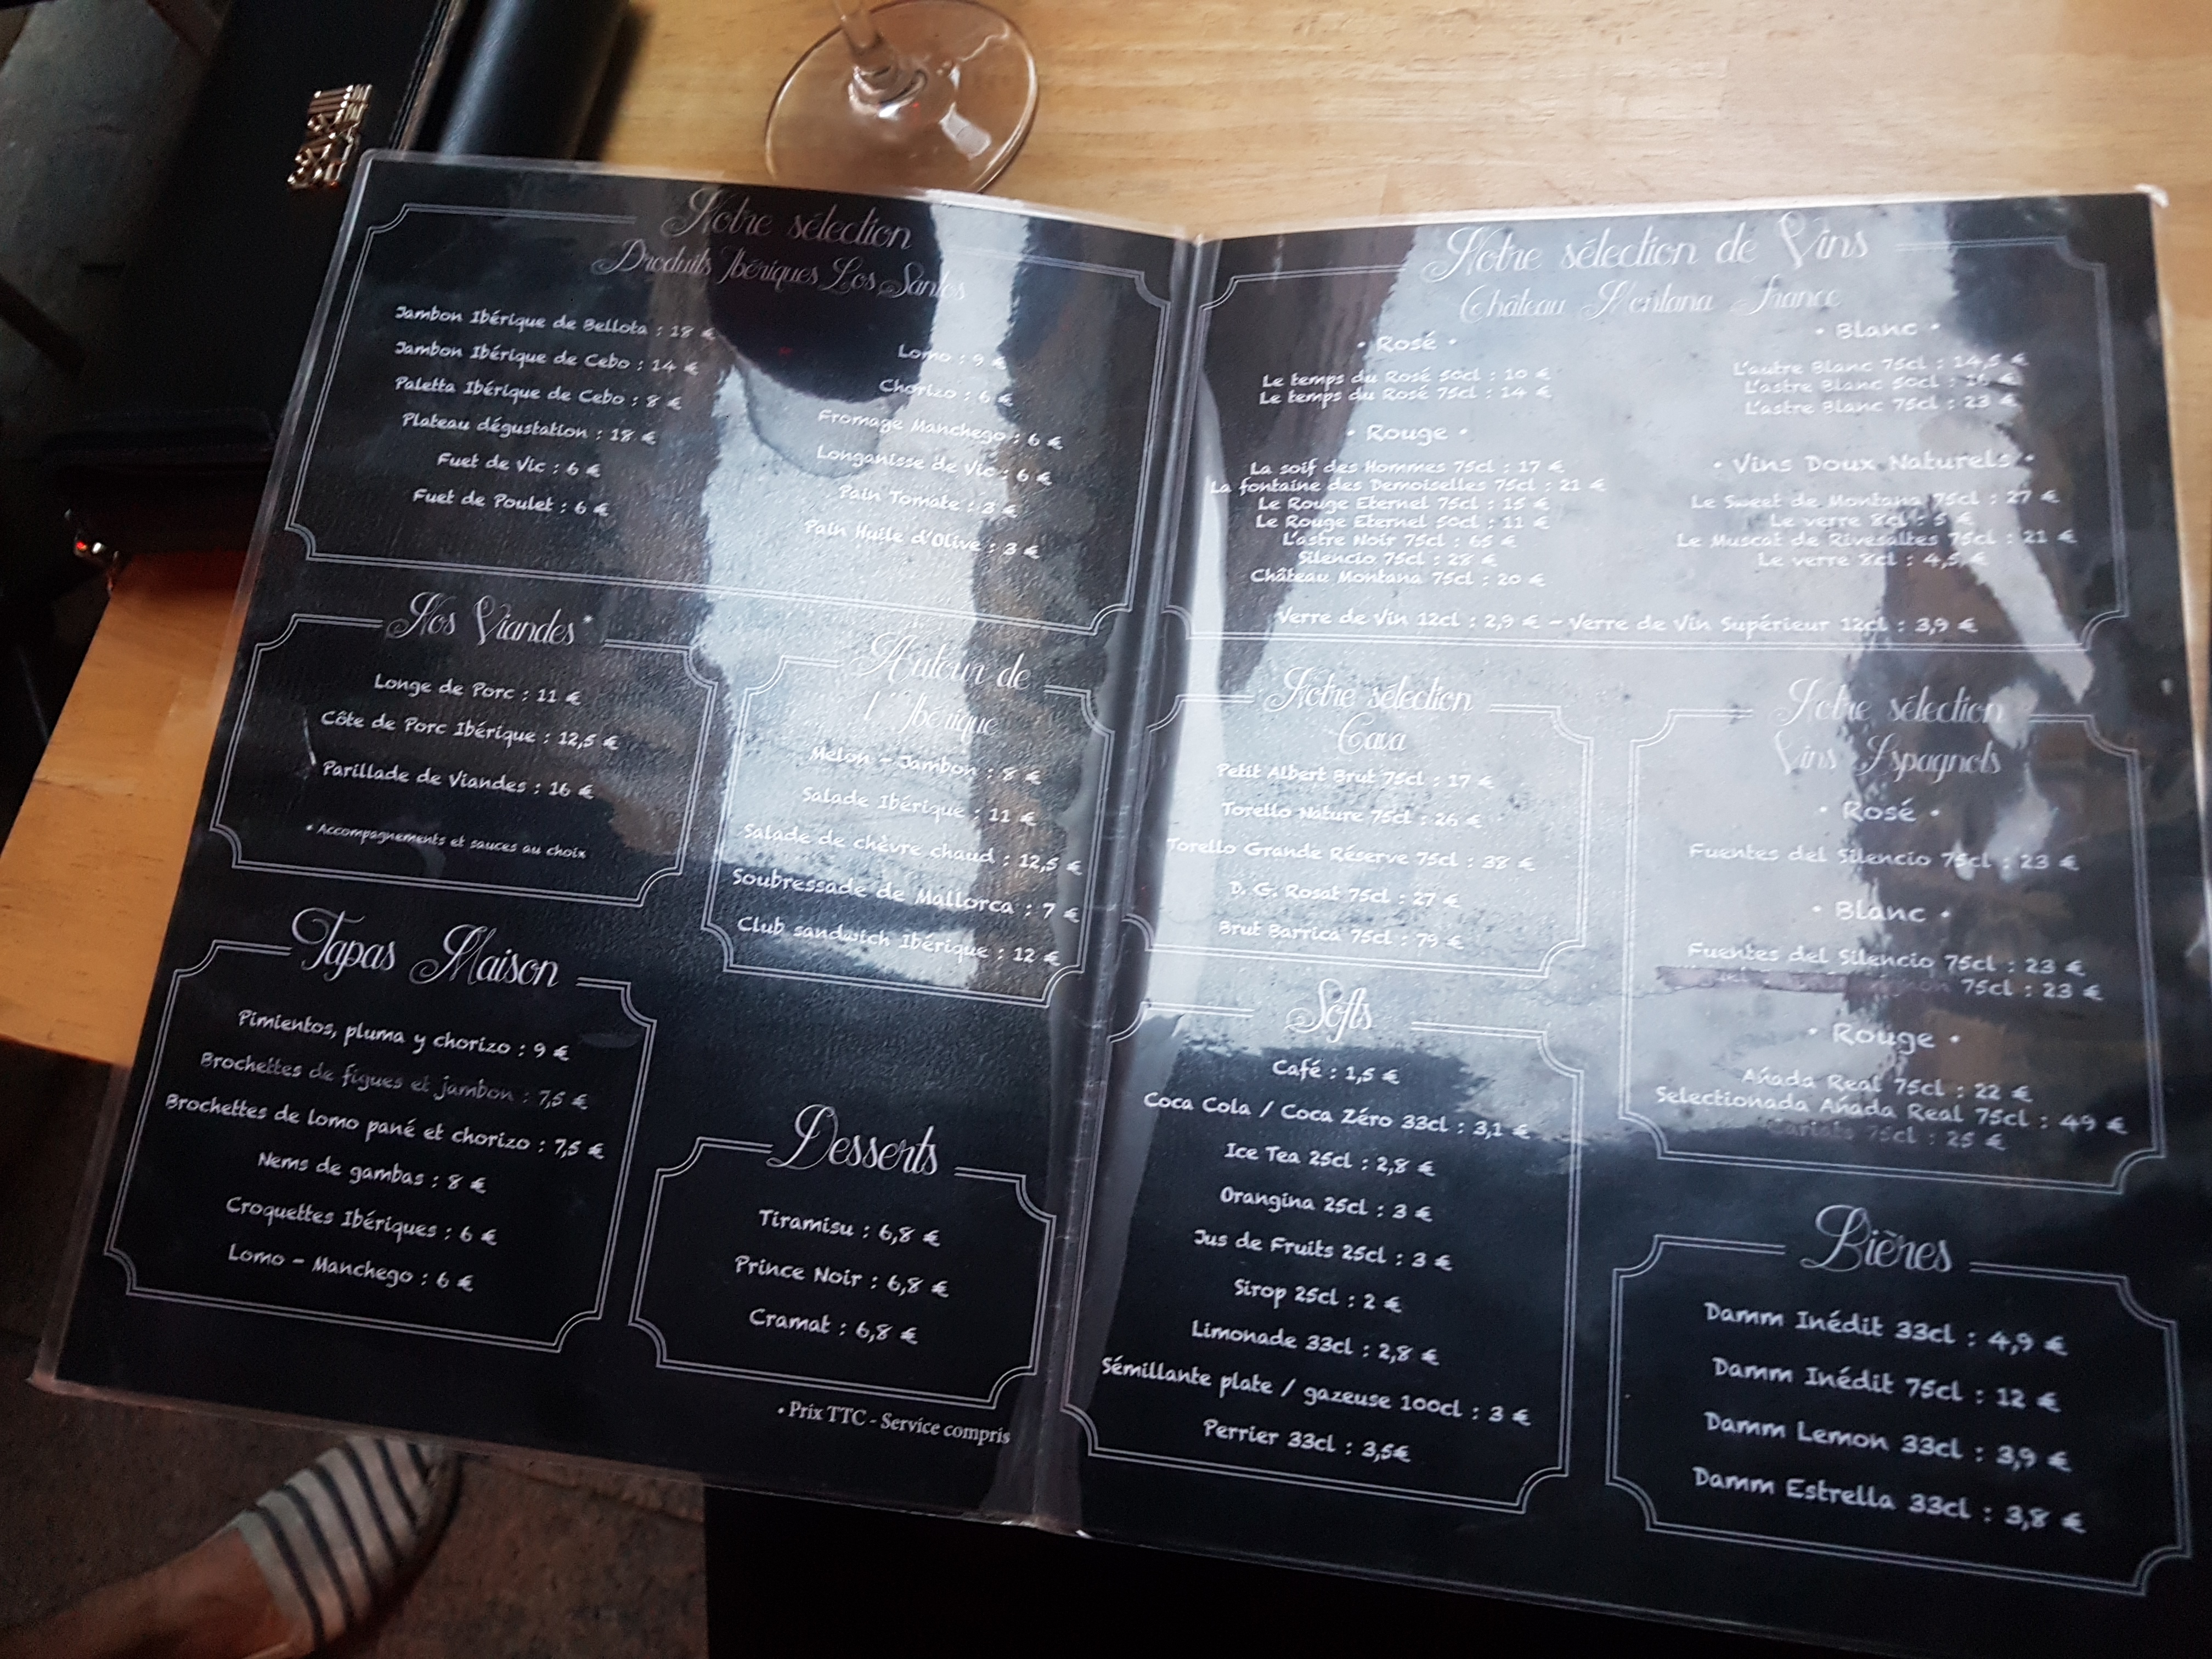 Notre sélection
Produits Ibériques Los Santos
Jambon Ibérique de Bellota : 18 €
Jambon Ibérique de Cebo : 14 €
Paletta Ibérique de Cebo : 8 €
Plateau dégustation : 18 €
Fuet de Vic : 6 €
Fuet de Poulet : 6 €
Lomo : 9 €
Chorizo : 6 €
Fromage Manchego : 6 €
Longanisse de Vic : 6 €
Pain Tomate : 3 €
Pain Huile d'Olive : 3 €
Nos Viandes*
Longe de Porc : 11 €
Côte de Porc Ibérique : 12,5 €
Parillade de Viandes : 16 €
* Accompagnements et sauces au choix
Autour de
l'Ibérique
Melon - Jambon : 8 €
Salade Ibérique : 11 €
Salade de chèvre chaud : 12,5 €
Soubressade de Mallorca : 7 €
Club sandwich Ibérique : 12 €
Tapas Maison
Pimientos, pluma y chorizo : 9 €
Brochettes de figues et jambon : 7,5 €
Brochettes de lomo pané et chorizo : 7,5 €
Nems de gambas : 8 €
Croquettes Ibériques : 6 €
Lomo - Manchego : 6 €
Desserts
Tiramisu : 6,8 €
Prince Noir : 6,8 €
Cramat : 6,8 €
• Prix TTC - Service compris
Notre sélection de Vins
Château Montana France
• Rosé •
Le temps du Rosé 50cl : 10 €
Le temps du Rosé 75cl : 14 €
• Rouge •
La soif des Hommes 75cl : 17 €
La fontaine des Demoiselles 75cl : 21 €
Le Rouge Eternel 75cl : 15 €
Le Rouge Eternel 50cl : 11 €
L'astre Noir 75cl : 65 €
Silencio 75cl : 28 €
Château Montana 75cl : 20 €
• Blanc •
L'autre Blanc 75cl : 14,5 €
L'astre Blanc 50cl : 16 €
L'astre Blanc 75cl : 23 €
• Vins Doux Naturels •
Le Sweet de Montana 75cl : 27 €
Le verre 8cl : 5 €
Le Muscat de Rivesaltes 75cl : 21 €
Le verre 8cl : 4,5 €
Verre de Vin 12cl : 2,9 € - Verre de Vin Supérieur 12cl : 3,9 €
Notre sélection
Cava
Petit Albert Brut 75cl : 17 €
Torello Nature 75cl : 26 €
Torello Grande Réserve 75cl : 38 €
D. G. Rosat 75cl : 27 €
Brut Barrica 75cl : 79 €
Notre sélection
Vins Espagnols
• Rosé •
Fuentes del Silencio 75cl : 23 €
• Blanc •
Fuentes del Silencio 75cl : 23 €
75cl : 23 €
• Rouge •
Añada Real 75cl : 22 €
Selectionada Añada Real 75cl : 49 €
75cl : 25 €
Softs
Café : 1,5 €
Coca Cola / Coca Zéro 33cl : 3,1 €
Ice Tea 25cl : 2,8 €
Orangina 25cl : 3 €
Jus de Fruits 25cl : 3 €
Sirop 25cl : 2 €
Limonade 33cl : 2,8 €
Sémillante plate / gazeuse 100cl : 3 €
Perrier 33cl : 3,5€
Bières
Damm Inédit 33cl : 4,9 €
Damm Inédit 75cl : 12 €
Damm Lemon 33cl : 3,9 €
Damm Estrella 33cl : 3,8 €